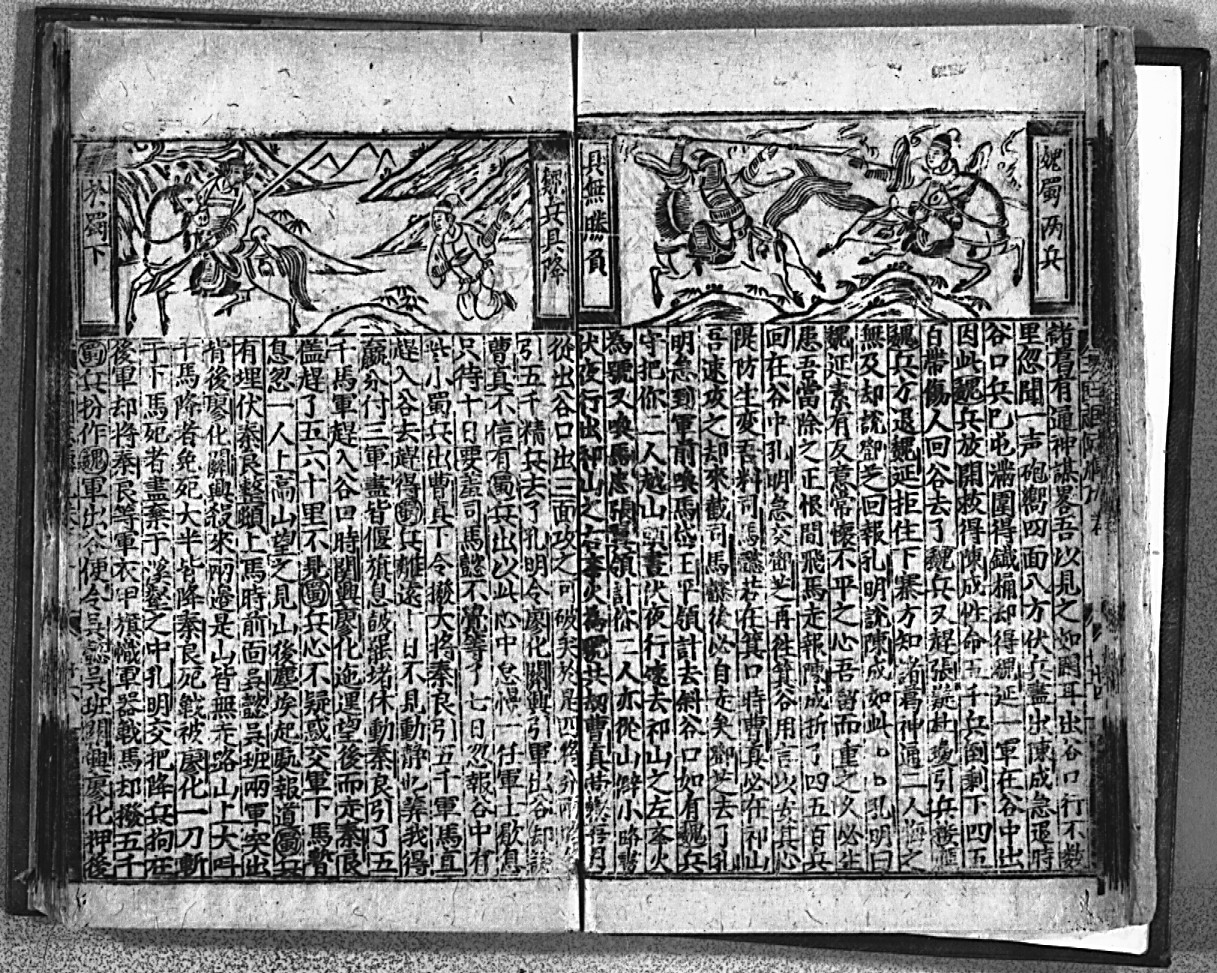 魏蜀兩兵
具無勝負
諸葛有通神謀畧吾以見之如困耳出谷口行不數
里忽聞一声砲嚮四面八方伏兵盡出陳成急退時
谷口兵已屯滿圍得鐵桶却得魏延一軍在谷中出
因此魏兵放開救得陳成性命五千兵倒剩下四五
百帶傷人回谷去了魏兵又趕張嶷杜瓊引兵
魏兵方退魏延拒住下寨方知諸葛神通二人悔之
無及却說鄧芝回報孔明說陳成如此如此孔明曰
魏延素有反意常懷不平之心吾留而重之久必生
患吾當除之正恨間飛馬走報陳成折了四五百兵
回在谷中孔明急交鄧芝再徃箕谷用言以安其心
隄防生変吾料司馬懿若在箕口時曹真必在祁山
吾速攻之却來截司馬懿後必自走矣鄧芝去了孔
明急到軍前喚馬岱王平領計去斜谷口如有魏兵
守把你二人越山 晝伏夜行速去祁山之左舉火
為號又喚馬忠張嶷領計你二人亦從山僻小路晝
伏夜行出祁山之右舉火為號共劫曹真
魏兵具降
於蜀下
從出谷口出三面攻之可破矣於是四將分
引五千精兵去了孔明令廖化關興引軍出谷却說
曹真不信有蜀兵出以此心中怠慢一任軍士歇息
只待十日要羞司馬懿不覺等了七日忽報谷中有
些小蜀兵出曹真下令撥大將秦良引五千軍馬直
趕入谷去趕得蜀兵離遠 日不見動静 等我得
嬴分付三軍盡皆偃旗息皷罷堵休動秦良引了五
千馬軍趕入谷口時關興廖化迤運望後而走秦良
儘趕了五六十里不見蜀兵心不疑惑交軍下馬暫
息忽一人上高山望之見山後塵埃起處報道蜀兵
有埋伏秦良整頓上馬時前面吳懿吳班兩軍突出
背後廖化關興殺來兩邊是山皆無走路山上大叫
下馬降者免死大半皆降秦良死戰被廖化一刀斬
于下馬死者盡棄于溪壑之中孔明交把降兵拘在
後軍却將秦良等軍衣甲旗幟軍器戰馬却撥五千
蜀兵扮作魏軍出谷便令吳懿吳班關興廖化押後